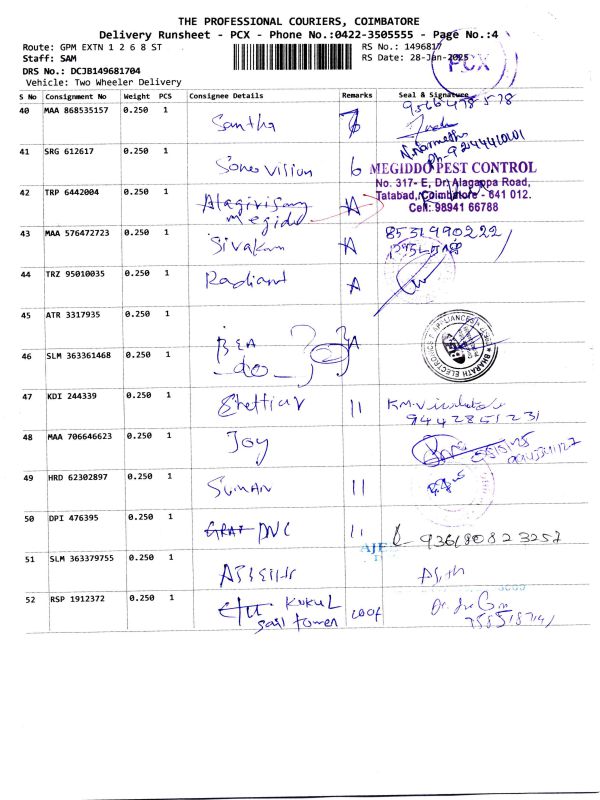 THE PROFESSIONAL COURIERS, COIMBATORE
Delivery Runsheet - PCX - Phone No.:0422-3505555 - Page No.:4
Route: GPM EXTN 1 2 6 8 ST
RS No.: 1496817
Staff: SAM
RS Date: 28-Jan-2025
PCX
DRS No.: DCJB149681704
Vehicle: Two Wheeler Delivery
S No Consignment No Weight PCS Consignee Details Remarks Seal & Signature
9566478578
40 MAA 868535157 0.250 1 Santha
Ph-9244410101
41 SRG 612617 0.250 1 Sonovision 6
MEGIDDO PEST CONTROL
No. 317- E, Dr. Alagappa Road,
Tatabad, Coimbatore - 641 012.
Cell: 98941 66788
42 TRP 6442004 0.250 1 A
Megido
43 MAA 576472723 0.250 1 Sivakam A 8531990222
44 TRZ 95010035 0.250 1 Radiant A
45 ATR 3317935 0.250 1
BEA A
BHARATH ELECTRONICS & APPLIANCES
46 SLM 363361468 0.250 1 -do-
47 KDI 244339 0.250 1 Chettiar 11
9442851231
48 MAA 706646623 0.250 1 Joy
49 HRD 62302897 0.250 1 SUMAN 11
50 DPI 476395 1 DVC 11
51 SLM 363379755 0.250 1
52 RSP 1912372 0.250 1 KOKUL
sail tower